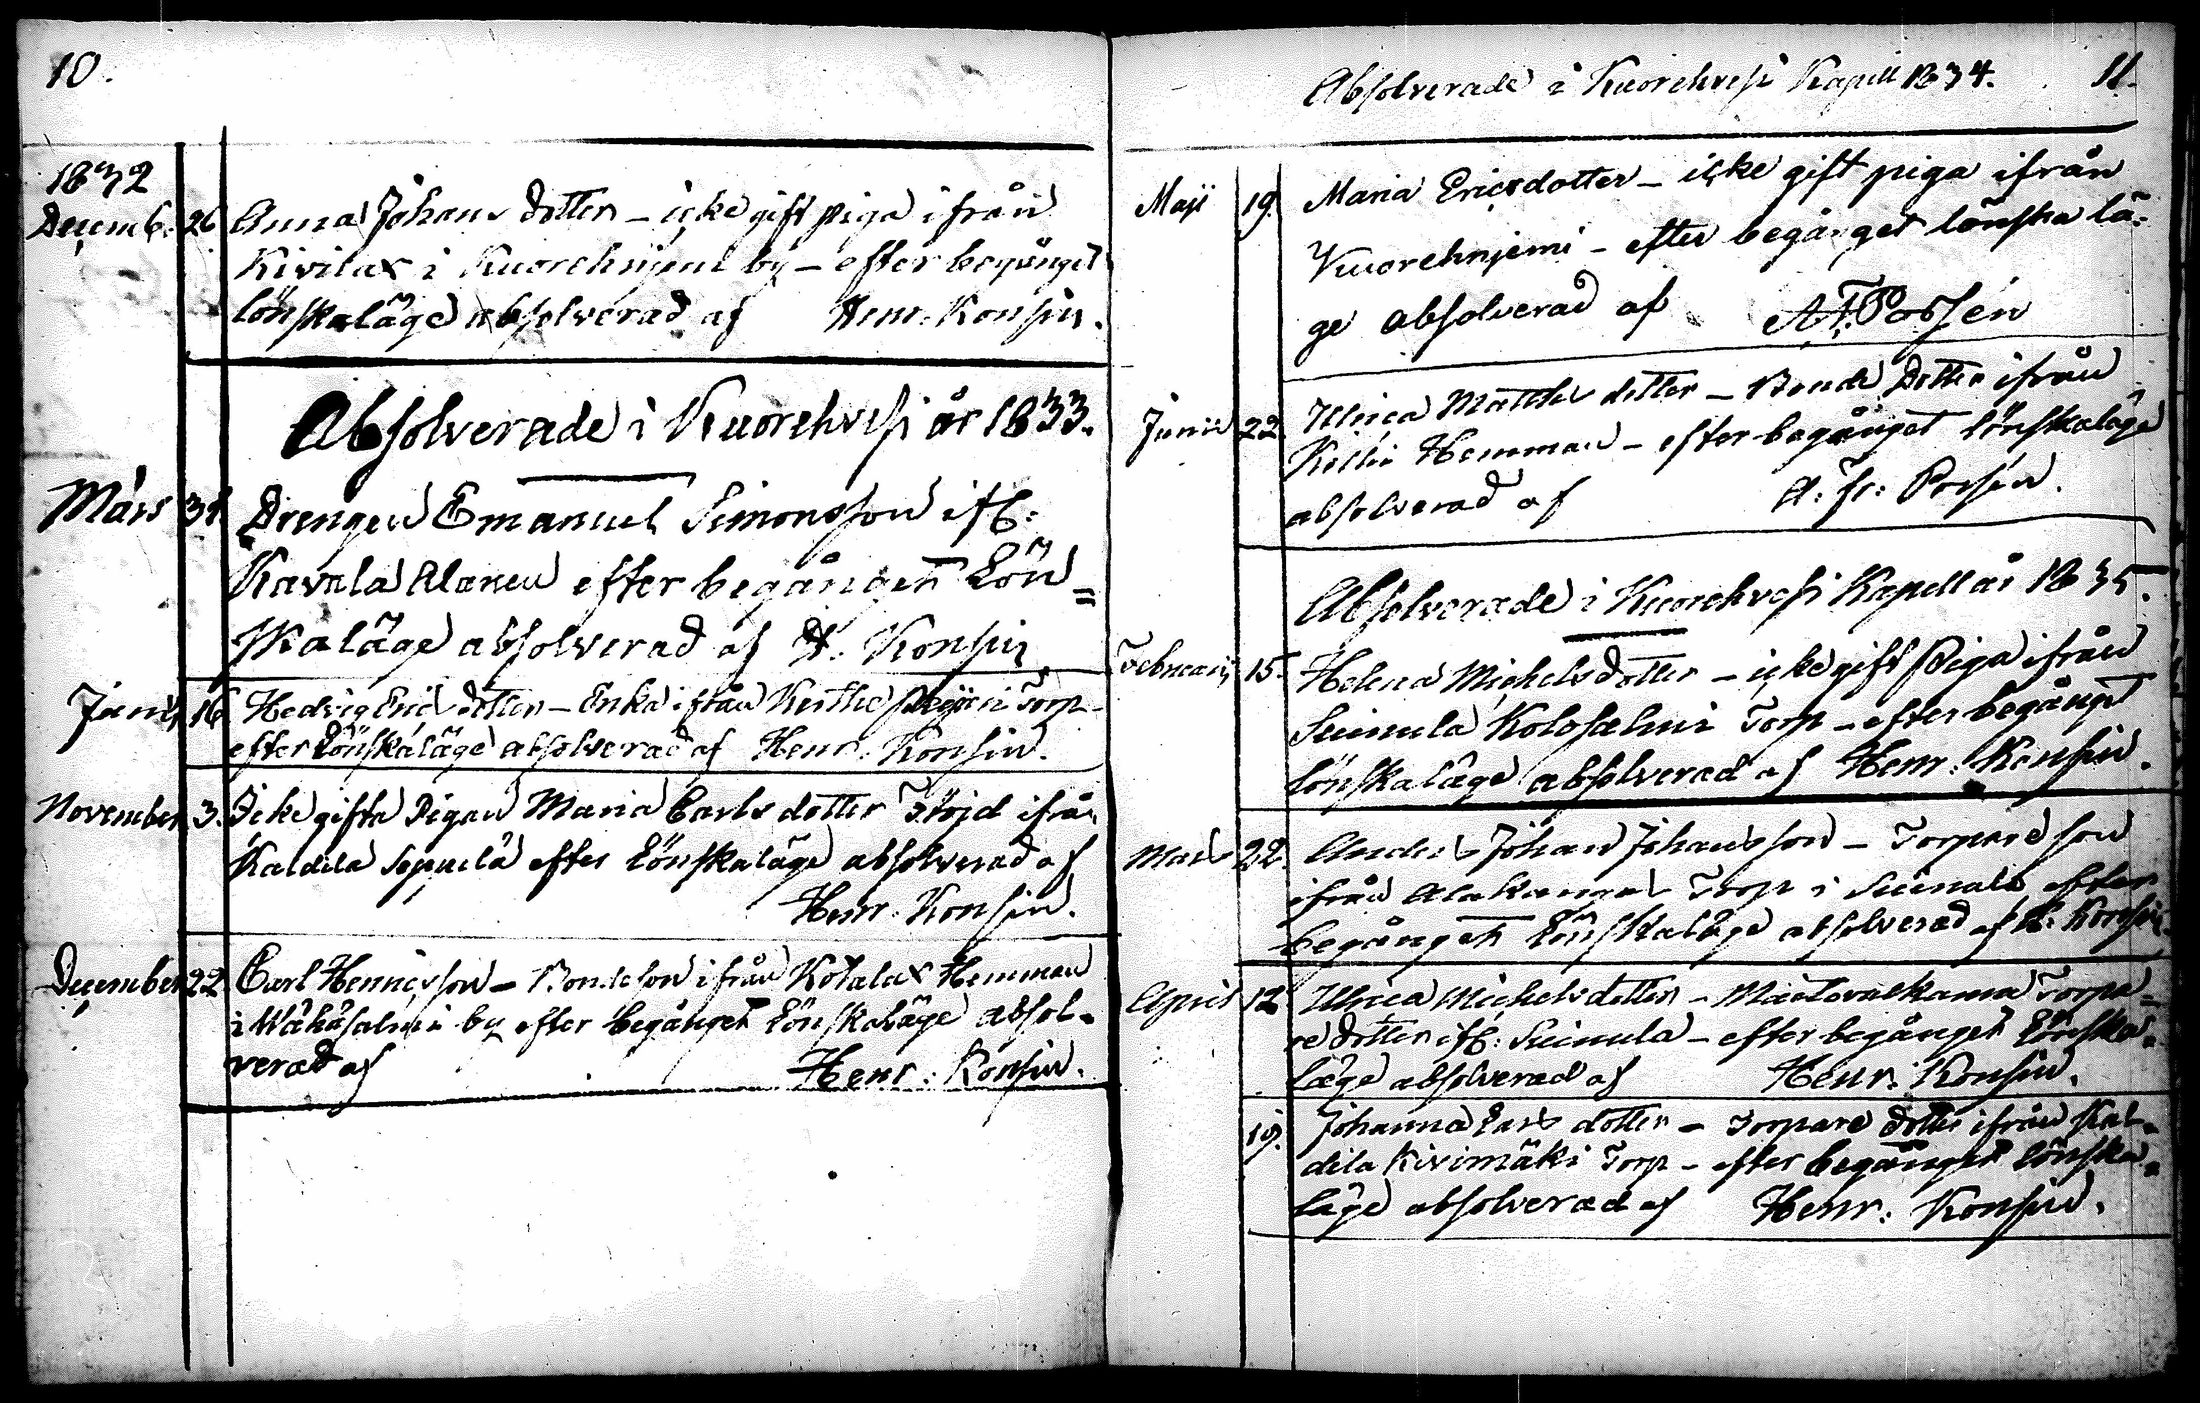 10.
1832
Decemb. 26 Anna Johans dotter – icke gift piga ifrån
Kivilax i Kuorehnjemi by – efter begånget
lönskaläge absolverad af Henr. Konsin.
Absolverade i Kuorehvesi år 1833.
Mars 31 Drengen Emanuel Simonsson ifr:
Kavala Alanen efter begånget Lön=
skaläge absolverad af H. Konsin
Junij 16 Hedvig Erics dotter – Enka ifrån Torp
efter Lönskaläge absolverad af Henr. Konsin.
November 3. Icke gifta Pigan Maria Carls dotter Fröjd ifrån
Kaldila Seppälä efter Lönskaläge absolverad af
Henr. Konsin.
December 22 Carl Henricsson – Bondeson ifrån Kotalax Hemman
i Wähäsalmi by efter begånget Lönskaläge absol-
verad af Henr. Konsin.
Absolverade i Kuorehvesi Kapell 1834. 11.
Maji 19. Maria Ericsdotter – icke gift piga ifrån
Kuorehnjemi – efter begånget lönska lä-
ge absolverad af A.F. Porsén
Junii 22. Ulrica Matthsdotter – Bonde Dotter ifrån
Hemman – efter begånget lönskaläge
absolverad af A. Fr: Porsén.
Absolverade i Kuorehvesi Kapell år 1835.
Februarij 15. Helena Michelsdotter – icke gift Piga ifrån
Suinula Kolosalmi Torp – efter begånget
Lönskaläge absolverad af Henr. Konsin.
Mars 22. Anders Johan Johansson – Torpare son
ifrån Alakangas Torp i Suinula efter
begånget Lönskaläge absolverad af H. Konsin.
April 12 Ulrica Michelsdotter – Torpa=
re dotter ifr: Suinula – efter begånget Lönska=
läge absolverad af Henr. Konsin.
19. Johanna Lars dotter – Torpare dotter ifrån Kal=
dila Kivimäki Torp – efter begånget Lönska=
läge absolverad af Henr. Konsin.